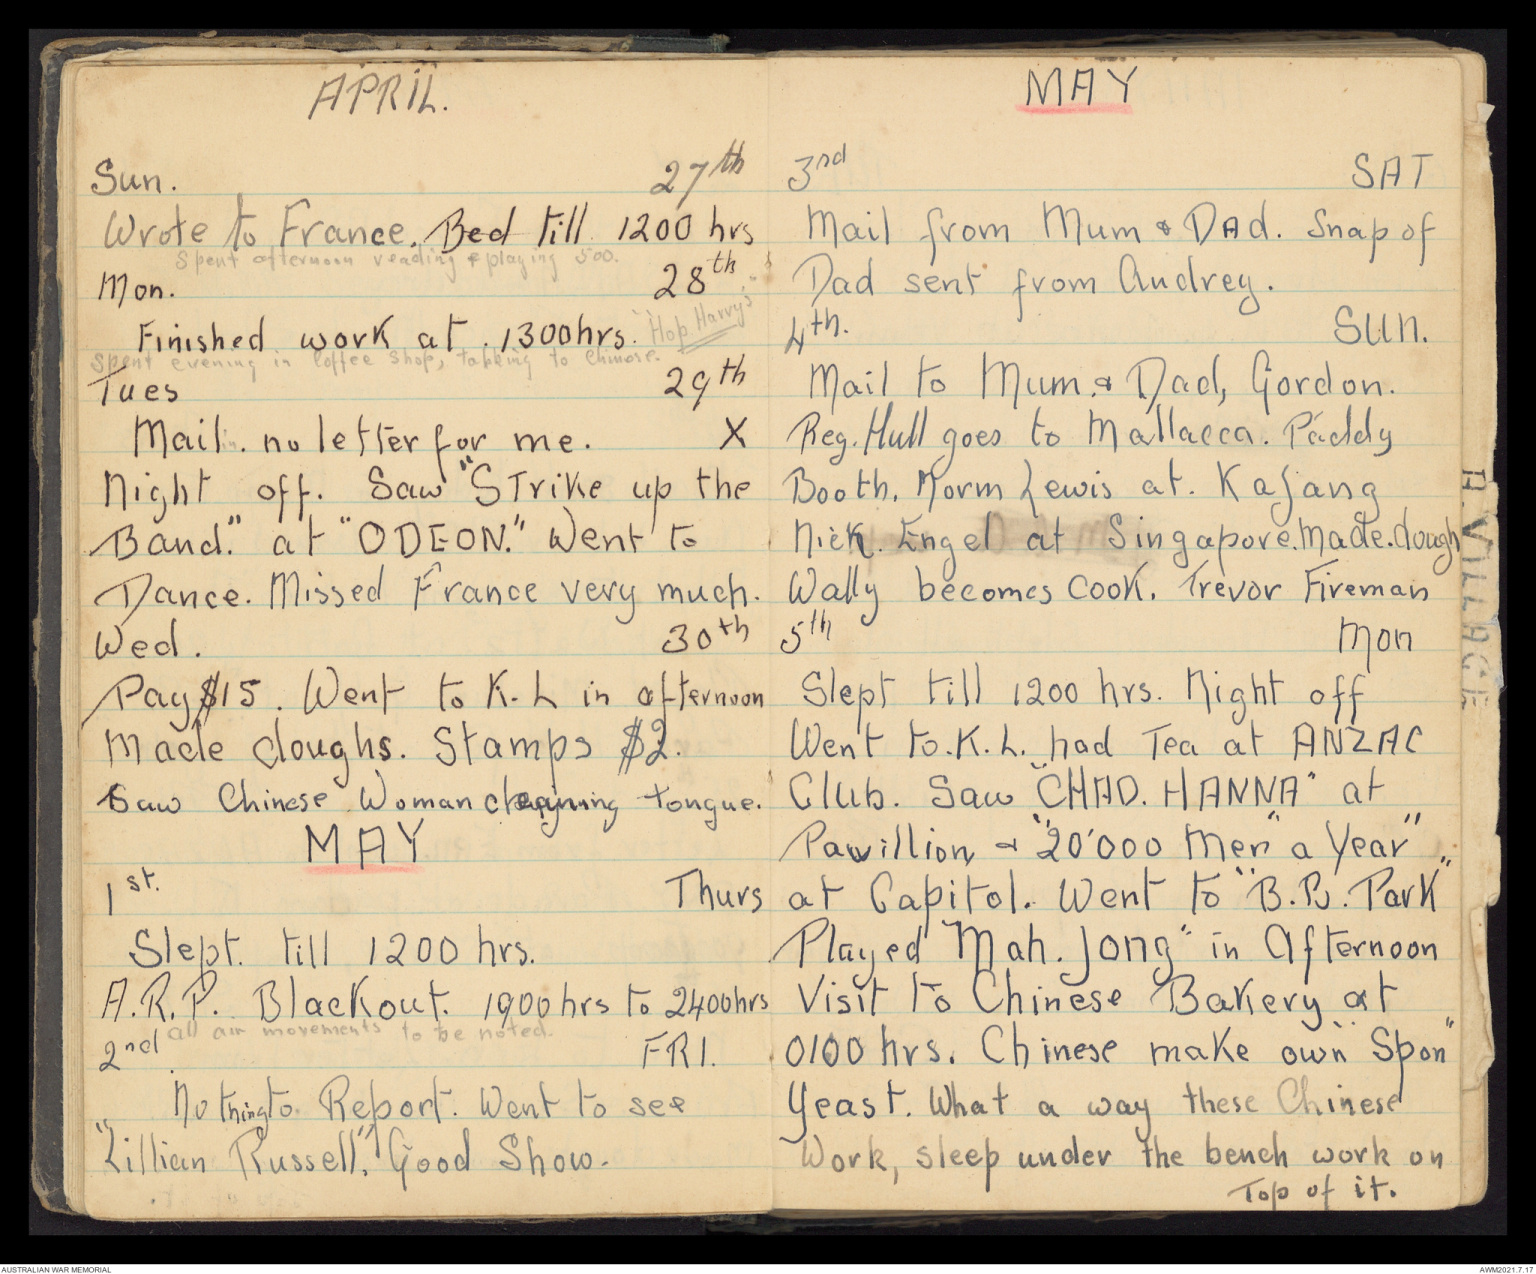 APRIL.
Sun. 27th
Wrote to France. Bed till 1200 hrs
Spent afternoon reading & playing 500.
Mon. 28th
Finished work at 1300hrs. "Hop Harry's"
Spent evening in Coffee Shop, talking to Chinese.
Tues 29th
Mail. no letter for me. X
Night off. Saw "STrike up the
Band." at "ODEON." Went to
Dance. Missed France very much.
Wed. 30th
Pay $15. Went to K.L in afternoon
Made doughs. Stamps $2.
Saw Chinese Woman cleaning tongue.
MAY
1st. Thurs
Slept. till 1200 hrs.
A.R.P. Blackout. 1900hrs to 2400hrs
all air movements to be noted.
2nd FRI.
Nothing to Report. Went to see
"Lillian Russell". Good Show.
MAY
3rd SAT
Mail from Mum & DAD. Snap of
Dad sent from Audrey.
4th. SUN.
Mail to Mum. & Dad, Gordon.
Reg. Hull goes to Mallacca. Paddy
Booth, Norm Lewis at. Kajang
Nick. Engel at Singapore. Made. dough
Wally becomes cook. Trevor Fireman
5th Mon
Slept till 1200 hrs. Night off
Went to. K.L. had Tea at ANZAC
Club. Saw "CHAD. HANNA" at
Pavillion & "20'000 Men" a Year"
at Capitol. Went to "B.B. Park"
Played "Mah. Jong" in Afternoon
Visit to Chinese Bakery at
0100 hrs. Chinese make own "Spon"
Yeast. What a way these Chinese
Work, sleep under the bench work on
Top of it.
AUSTRALIAN WAR MEMORIAL
AWM2021.7.17